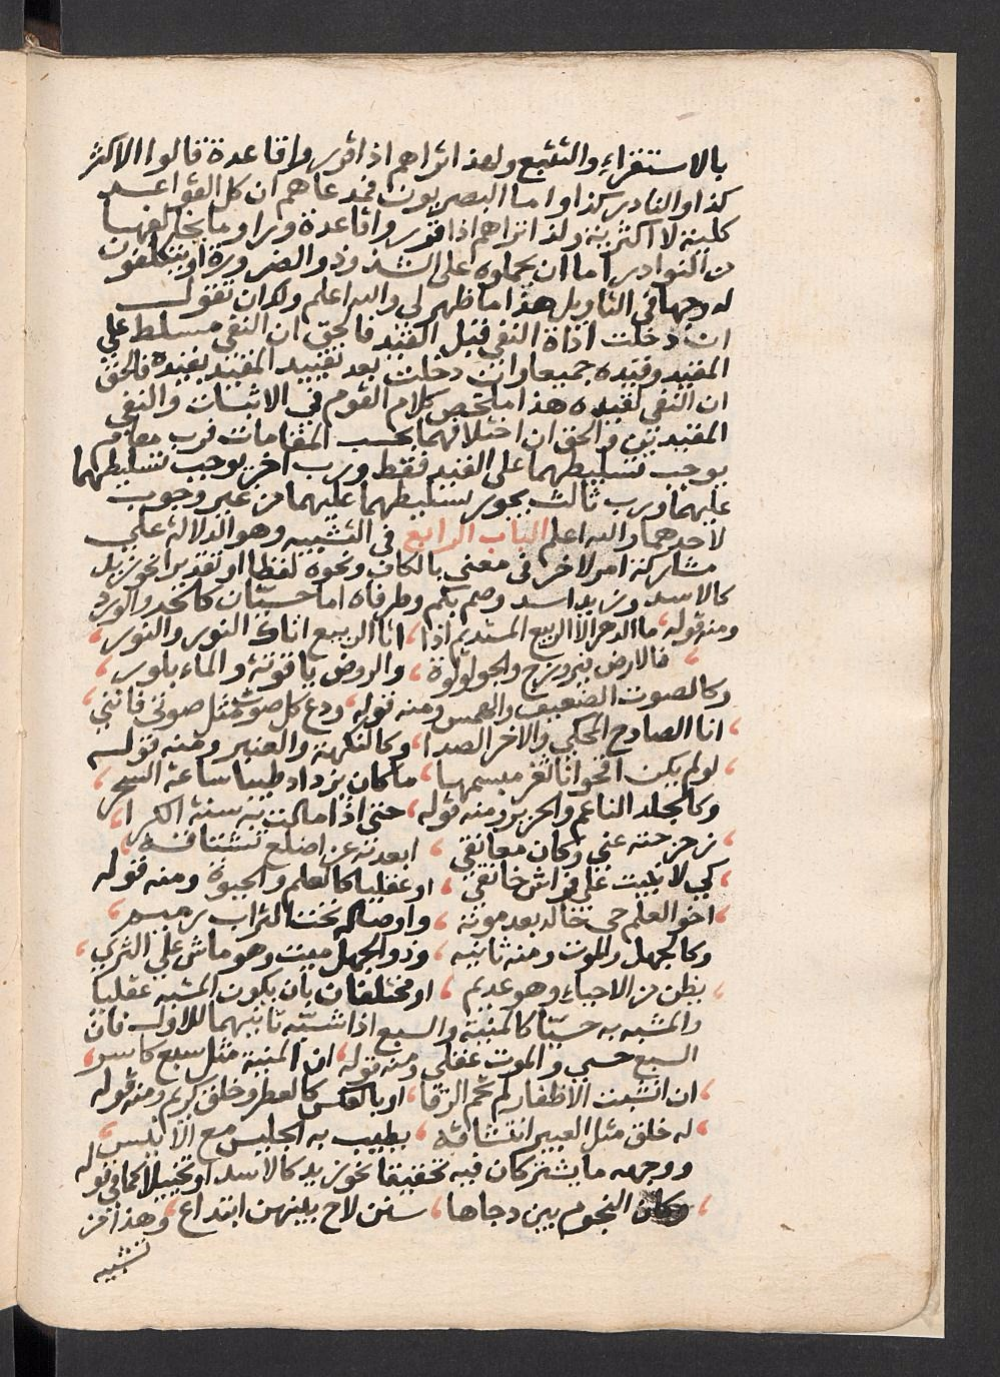 بالاستقراء والتتبع ولهذا تراهم اذا قرروا قاعدة قالوا الاكثر
كذا والنادر كذا واما البصريون فمدعاهم ان كل القواعد
كلية لا اكثرية ولذا تراهم اذا قرروا قاعدة وراوا ما يخالفها
من النوادر اما ان يحملوه على الشذوذ والضرورة او يتكلفون
له وجها في التاويل هذا ما ظهر لي والله اعلم ولك ان تقول
ان دخلت اداة النفي قبل القيد فالحق ان النفي مسلط على
المقيد وقيده جميعا وان دخلت بعد تقييد المقيد بقيده فالحق
ان النفي لقيده هذا ملخص كلام القوم في الاثبات والنفي
المقيدين والحق ان اختلافهما بحسب المقامات فرب مقام
يوجب تسليطهما على القيد فقط ورب اخر يوجب تسليطهما
عليهما ورب ثالث يجوز تسليطهما عليهما من غير وجوب
لاحدهما والله اعلم الباب الرابع في التشبيه وهو الدلالة على
مشاركة امر لاخر في معنى بالكاف ونحوه لفظا او تقديرا نحو زيد
كالاسد وزيد اسد وصم بكم وطرفاه اما حسيان كالخد والورد
ومنه قوله ما الدهر الا الربيع المستديم اذا ، اتا الربيع اتاك النور والنور ،
، فالارض فيروزج والجو لؤلؤة ، والروض ياقوتة والماء بلور ،
وكالصوت الضعيف والهمس ومنه قوله ، ودع كل صوت مثل صوتي فانني ،
، انا الصادح المحكي والاخر الصدا ، وكالنكهة والعنبر ومنه قوله
، لو لم يكن اقحوانا ثغر مبسمها ، ما كان يزداد طيبا ساعة السحر ،
وكالجلد الناعم والحرير ومنه قوله ، حتى اذا مالت به سنة الكرا ،
، زحزحته عني وكان معانقي ، ابعدته عن اضلع تشتاقه ،
، كي لا يبيت على فراش خافقي ، او عقليا كالعلم والحيوة ومنه قوله
، اخو العلم حي خالد بعد موته ، واوصاله تحت التراب رميم ،
وكالجهل والموت ومنه ثانيه ، وذو الجهل ميت وهو ماش على الثرى ،
، يظن من الاحياء وهو عديم ، او مختلفان بان يكون المشبه عقليا
والمشبه به حسيا كالمنية والسبع اذا شبه ثانيهما للاول فان
السبع حسي والموت عقلي ومنه قوله ، ان المنية مثل سبع كاسر ،
، ان انشبت الاظفار لم تحم الرقا ، او بالعكس كالعطر وخلق كريم ومنه قوله
، له خلق مثل العبير انتشاقه ، يطيب به الجليس مع الانيس ،
ووجهه ما يشتركان فيه تحقيقا نحو زيد كالاسد او تخييلا كما في قوله
، وكان النجوم بين دجاها ، سنن لاح بينهن ابتداع ، وهذا من
تشبيه